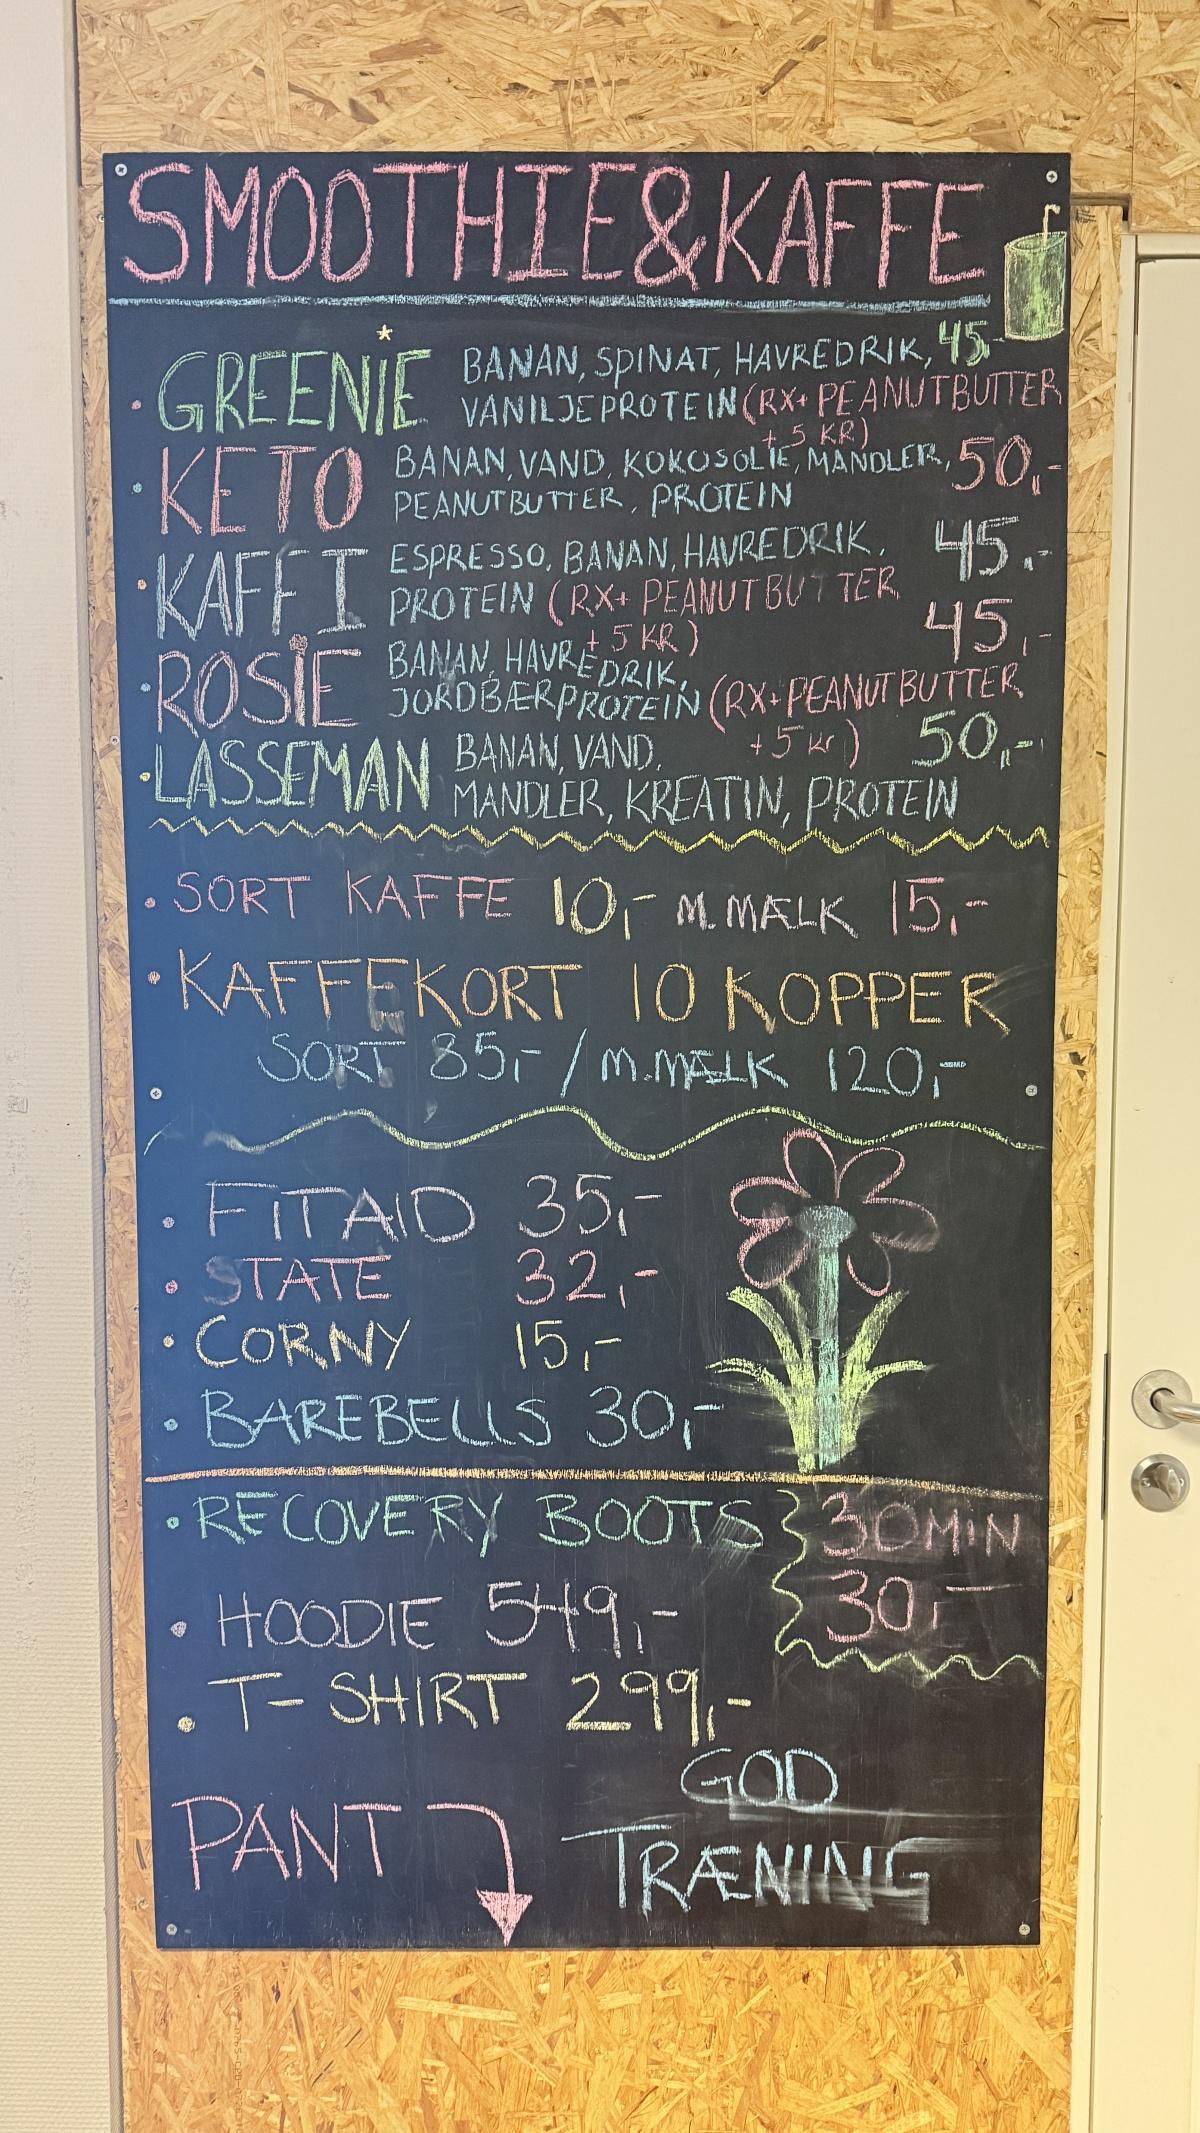 SMOOTHIE & KAFFE
GREENIE BANAN, SPINAT, HAVREDRIK, 45,-
VANILJEPROTEIN (RX+ PEANUTBUTTER
+ 5 KR)
KETO BANAN, VAND, KOKOSOLIE, MANDLER, 50,-
PEANUTBUTTER, PROTEIN
KAFFI ESPRESSO, BANAN, HAVREDRIK, 45,-
PROTEIN (RX+ PEANUTBUTTER
+ 5 KR)
ROSIE BANAN, HAVREDRIK, 45,-
JORDBÆRPROTEIN (RX+ PEANUTBUTTER
+5 kr)
LASSEMAN BANAN, VAND, 50,-
MANDLER, KREATIN, PROTEIN
• SORT KAFFE 10,- M. MÆLK 15,-
• KAFFEKORT 10 KOPPER
SORT 85,- / M. MÆLK 120,-
• FITAID 35,-
• STATE 32,-
• CORNY 15,-
• BAREBELLS 30,-
• RECOVERY BOOTS 30 MIN
30,-
• HOODIE 549,-
• T-SHIRT 299,-
GOD
TRÆNING
PANT